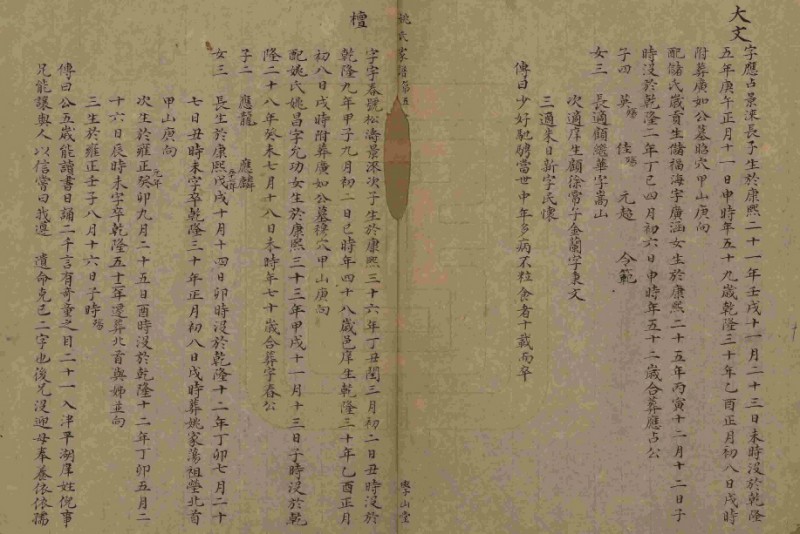 大文
字應占景深長子生於康熙二十一年壬戌十一月二十三日未時沒於乾隆
五年庚午正月十一日申時年五十九歲乾隆三十年乙酉正月初八日戌時
附葬廣如公墓昭穴甲山庚向
配儲氏歲貢生儲福海字廣涵女生於康熙二十五年丙寅十二月十二日子
時沒於乾隆二年丁巳四月初六日申時年五十二歲合葬應占公
子四 英殤 佳殤 元超 令範
女三 長適顧 華字嵩山
次適庠生顧徐常子金蘭字東文
三適來日新字氏懷
傳曰少好馳騁當世中年多病不粒食者十載而卒
姚氏家譜第五
學山堂
檀
字宇春號松濤景深次子生於康熙三十六年丁丑閏三月初二日丑時沒於
乾隆九年甲子九月初二日巳時年四十八歲邑庠生乾隆三十年乙酉正月
初八日戌時附葬廣如公墓穆穴甲山庚向
配姚氏姚昌字允功女生於康熙三十三年甲戌十一月十三日子時沒於乾
隆二十八年癸未七月十八日未時年七十歲合葬宇春公
子二 應龍 應麟
女三 長生於康熙戊戌十月十四日卯時沒於乾隆十二年丁卯七月二十
七日丑時未字卒乾隆三十年正月初八日戌時葬姚家蕩祖塋北首
甲山庚向
次生於雍正癸卯元年九月二十五日酉時沒於乾隆十二年丁卯五月二
十六日辰時未字卒乾隆五十三年遷葬北首與姊並向
三生於雍正壬子八月十六日子時殤
傳曰公五歲能讀書日誦二千言有奇童之目二十一入泮平湖庠姓倪事
兄能讓與人以信嘗曰我遵 遺命克己二字也後兄沒迎母奉養依依孺